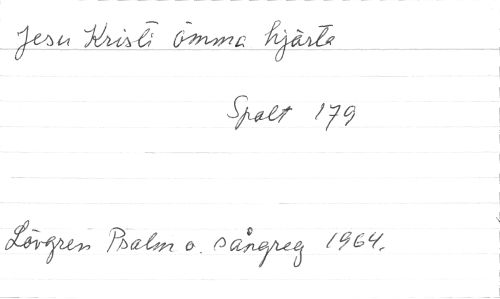 Jesu Kristi ömma hjärta
Spalt 179
Lövgren Psalm o. sångreg 1964.